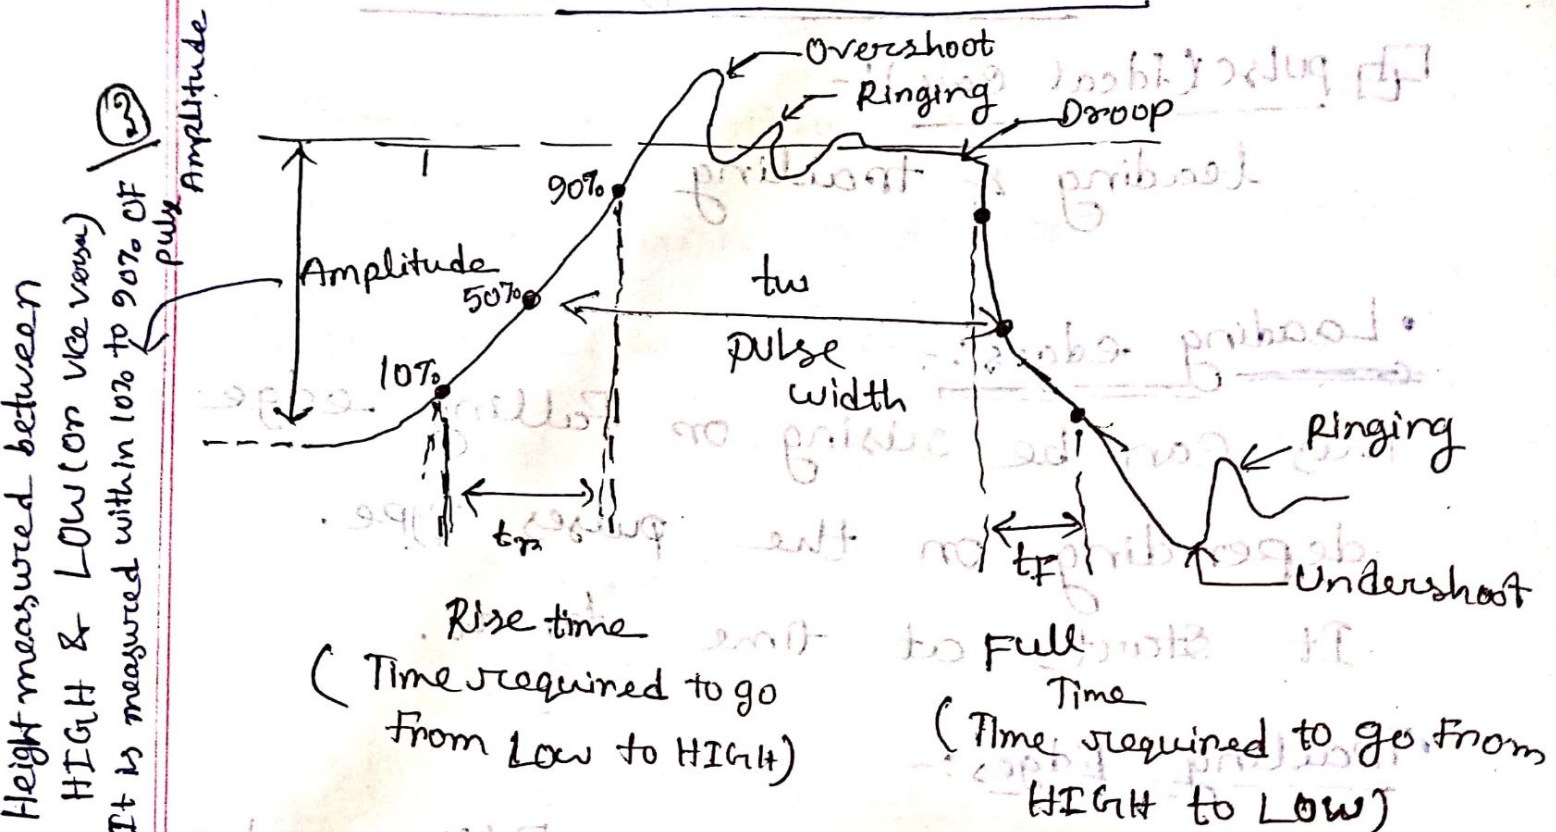 Height measured between
HIGH & LOW (or vice versa)
It is measured within 10% to 90% OF
puls
Amplitude
Overshoot
Ringing
Droop
90%
Amplitude
50%
10%
tw
pulse
width
tr
tF
Ringing
Undershoot
Rise time
( Time required to go
From Low to HIGH)
Full
Time
( Time required to go From
HIGH to LOW)